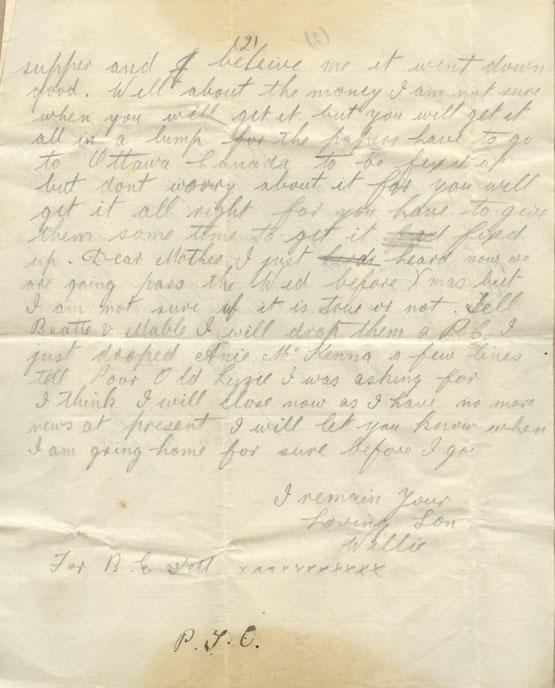 (2)
supper and I beleive me it went down
good. Well about the money I am not sure
when you will get it but you will get it
all in a lump for the papers have to go
to Ottawa Canada to be fixed up
but dont worry about it for you will
get it all right for you have to give
them some time to get it had fixed
up. Dear Mother I just hear heard now we
are going pass the Wed before Xmas but
I am not sure if it is true or not. Tell
Beatie & Mable I will drop them a P.C. I
just droped Anie Mc Kenna a few lines
tell Poor Old Lizzie I was asking for
I think I will close now as I have no more
news at present I will let you know when
I am going home for sure before I go
I remain Your
Loving Son
Wallie
For B. E. xxxxxxxxxxx
P. T. O.